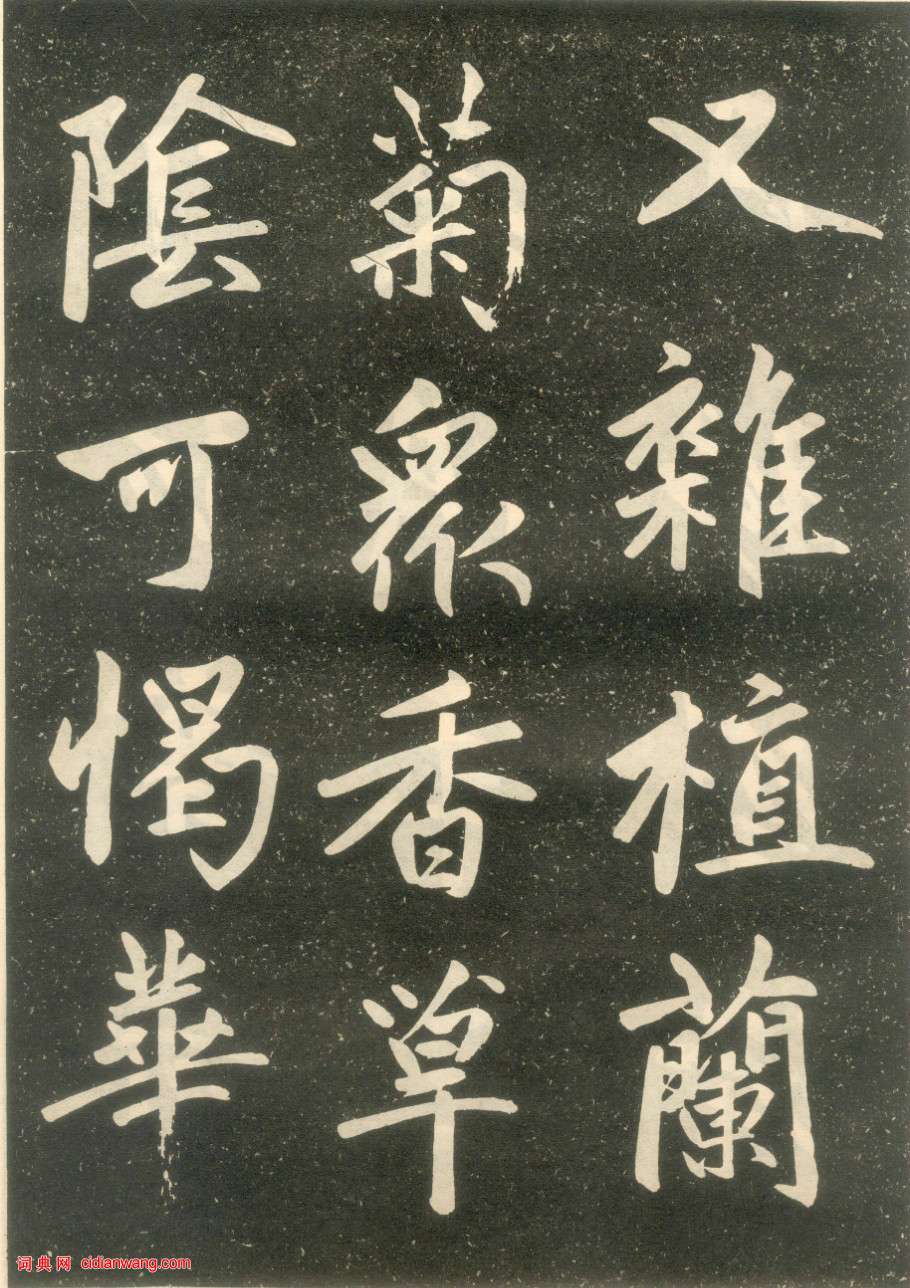 又雜植蘭
菊衆香草
陰可愒華
词典网 cidianwang.com